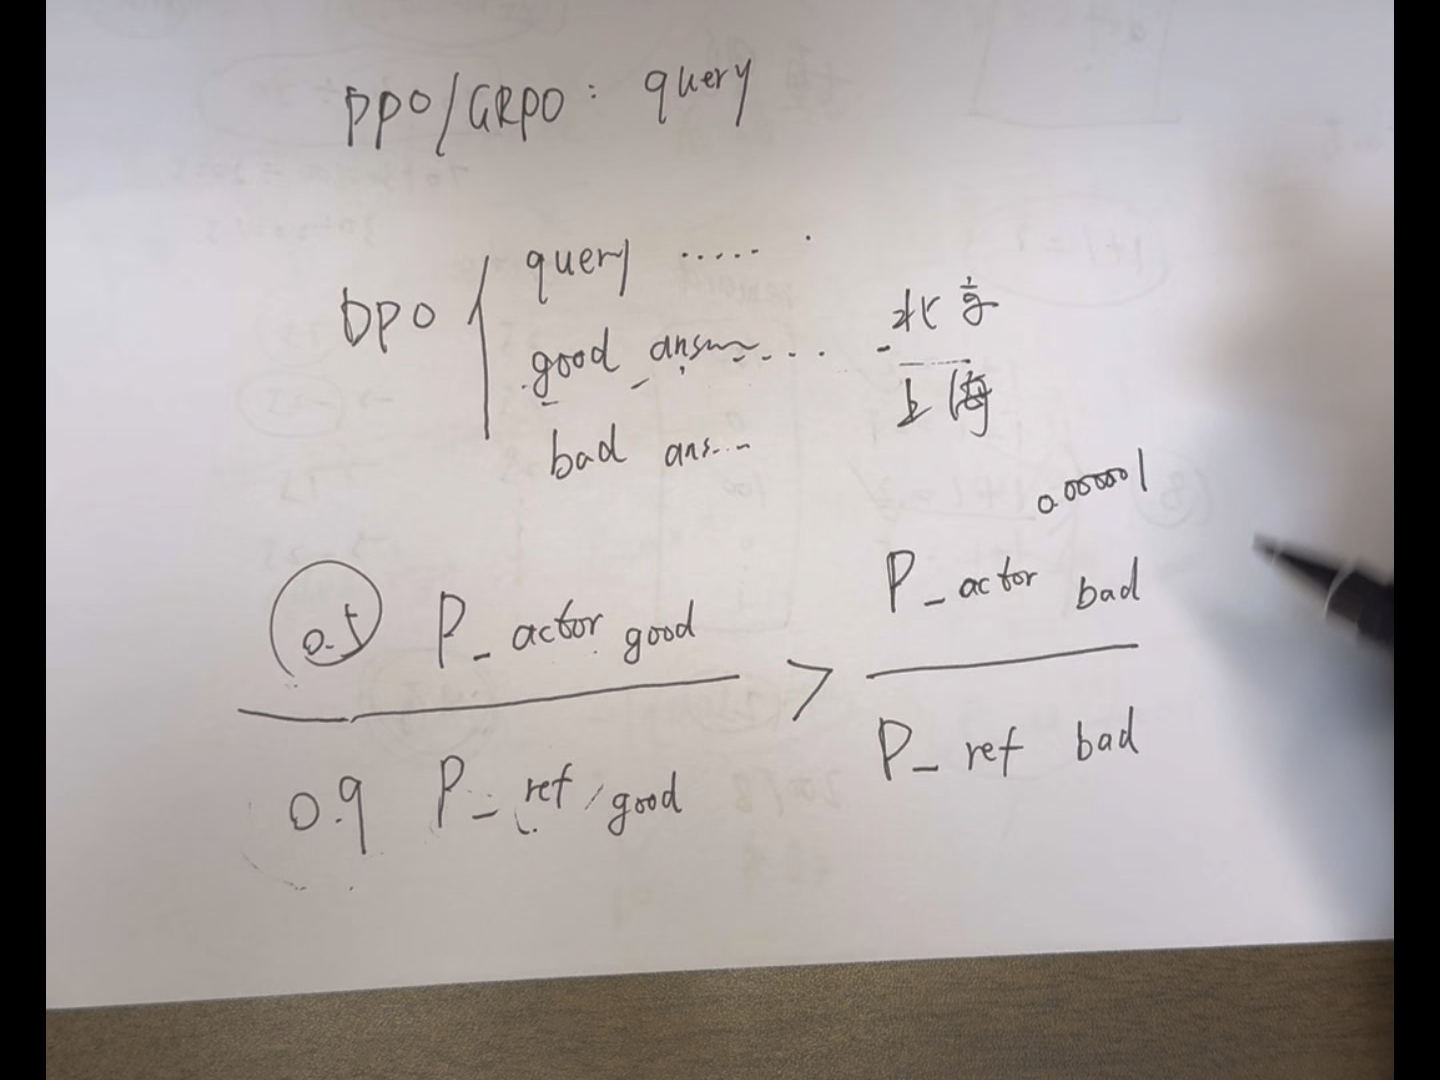 PPO/GRPO: query
DPO { query ..... .
good answ.... 北京
上海
bad ans...
0.000001
0.5 P_actor good > P_actor bad
0.9 P_ref good P_ref bad